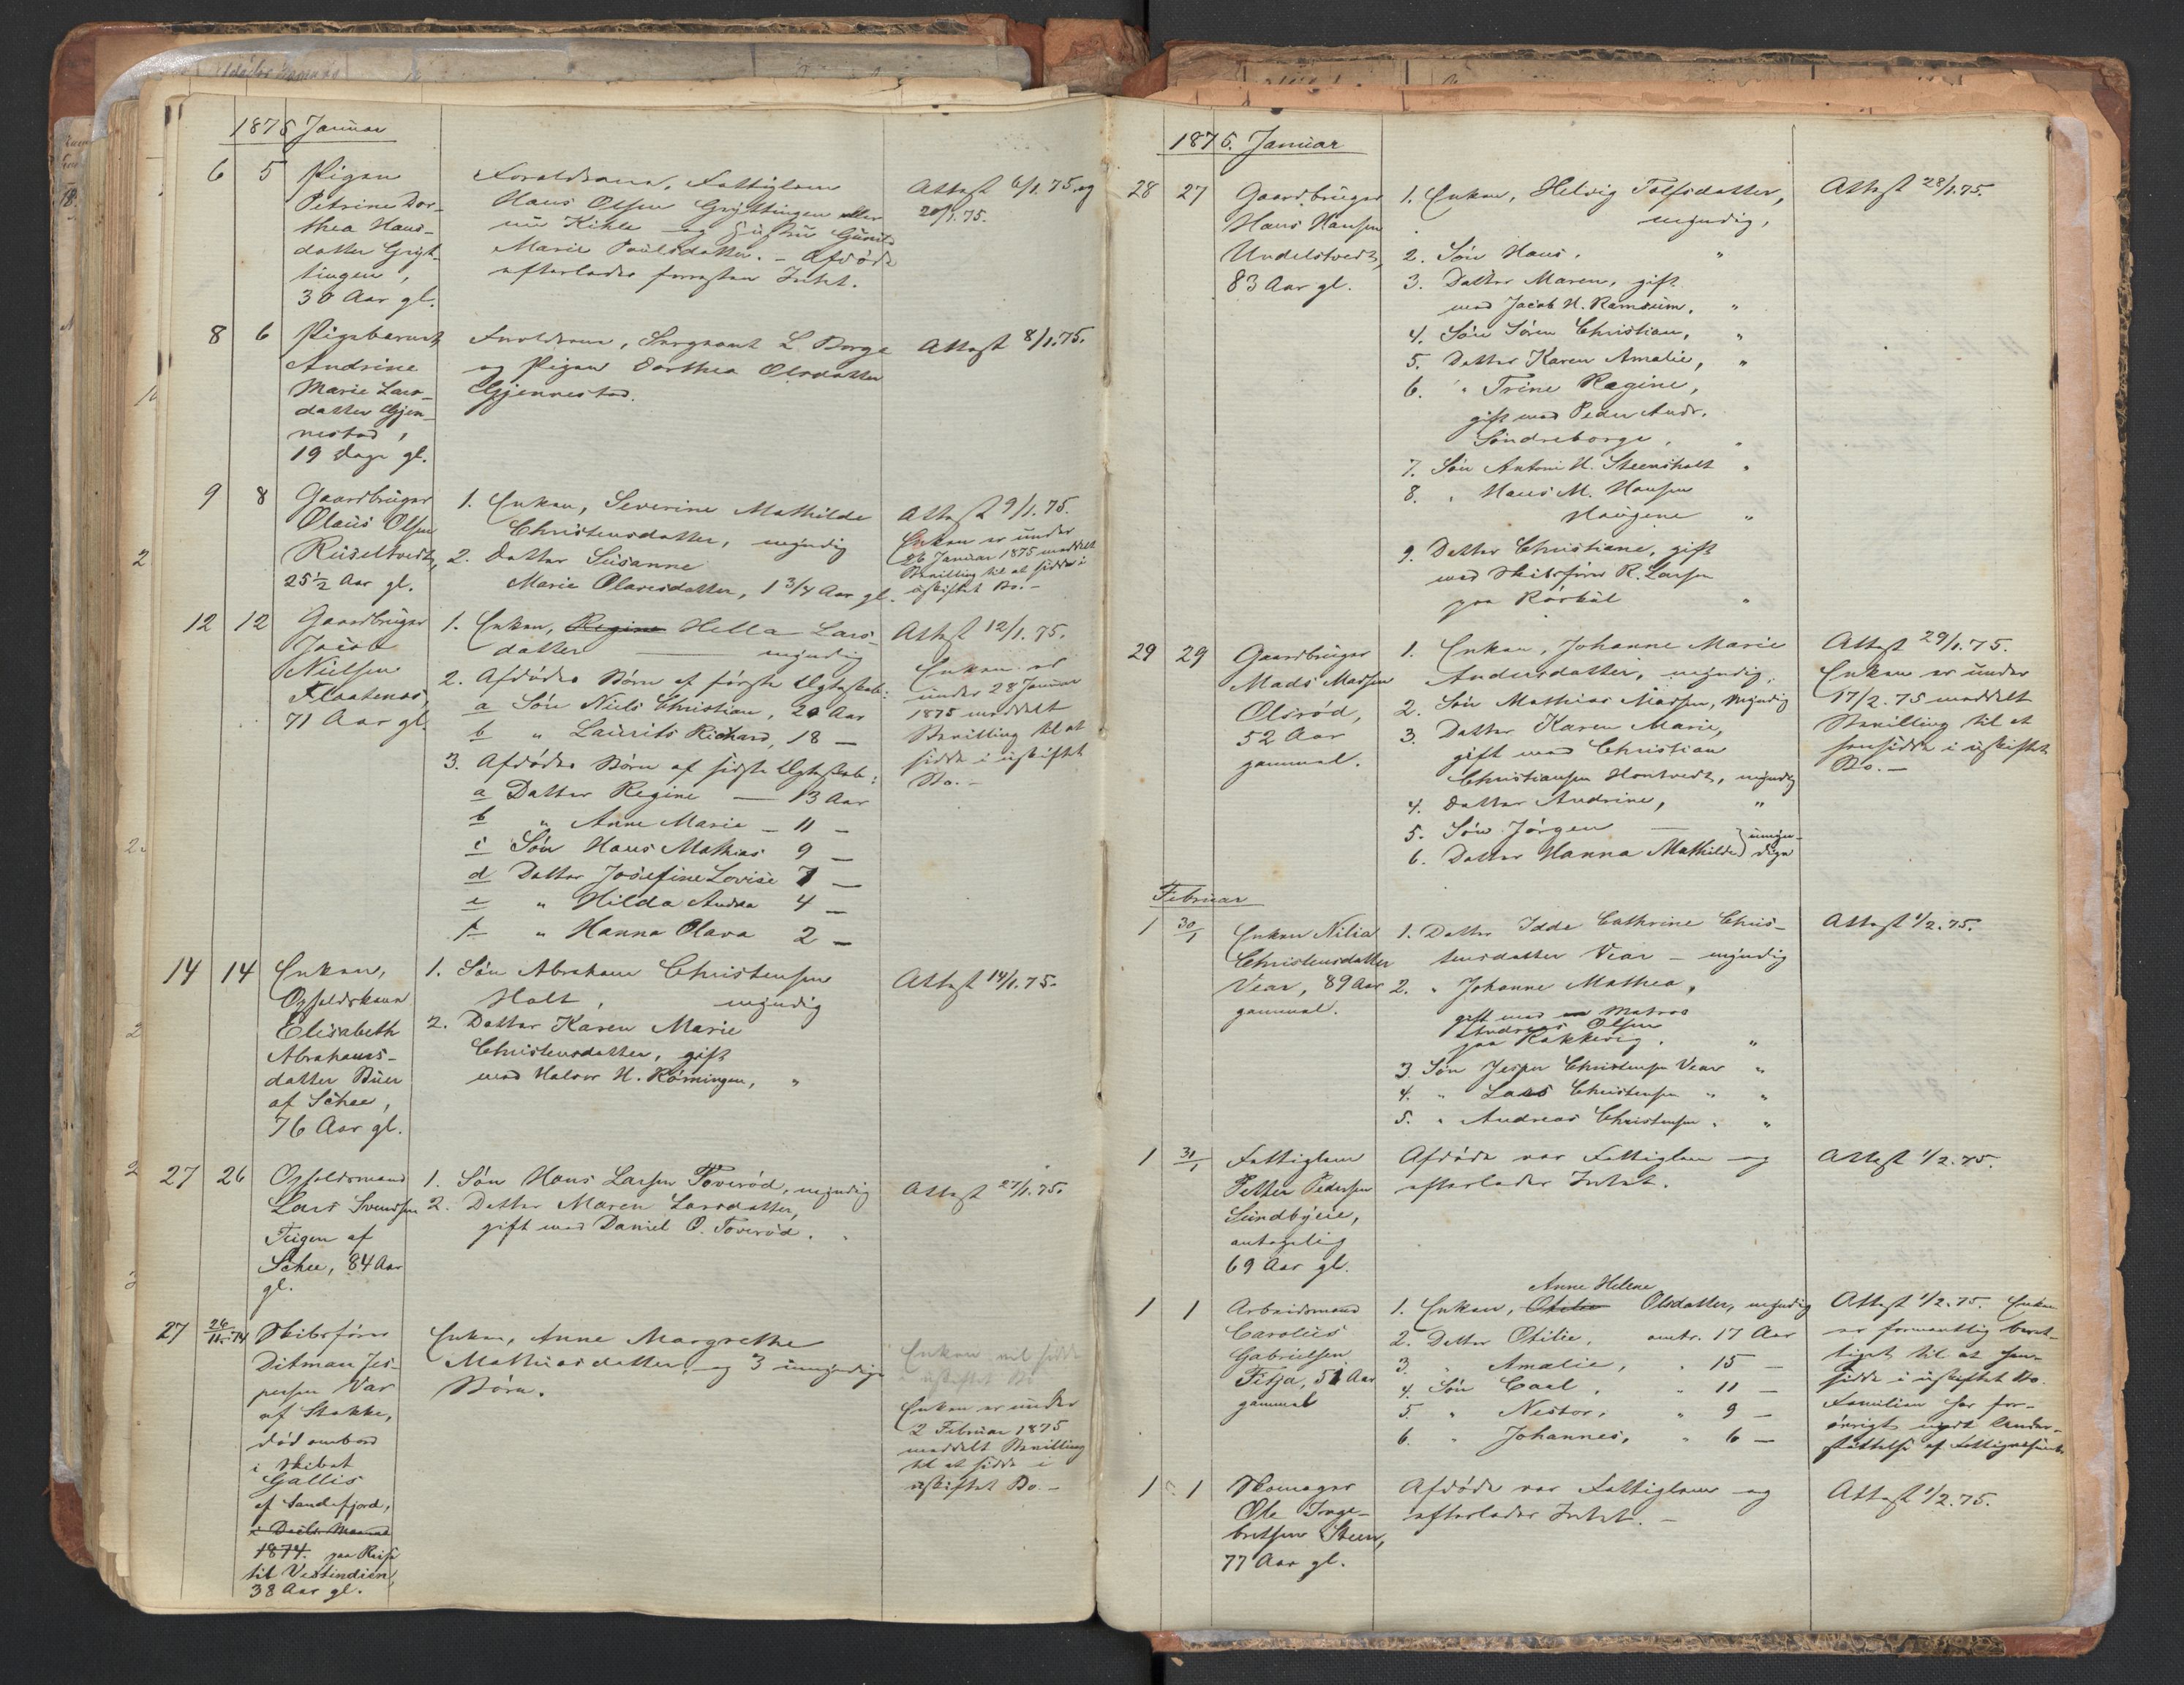 1875 Januar
6 5 Pigen
Petrine Dor-
thea Hans-
datter Gryt-
tingen,
30 Aar gl.
Forældrene, Fattiglem
Hans Olsen Gryttingen eller
nu Kihle og Hustru Gunild
Marie Paulsdatter. – Afdøde
efterlader forresten Intet.
Attest 6/1. 75. og
20/1. 75.
8 6 Pigebarnet
Andrine
Marie Lars-
datter Gjen-
nestad,
19 Dage gl.
Forældrene, Sergeant L. Borge
og Pigen Dorthea Olsdatter
Gjennestad.
Attest 8/1. 75.
9 8 Gaardbruger
Olaus Olsen
Ruseltvedt,
25 1/2 Aar gl.
1. Enken, Severine Mathilde
Christensdatter, myndig
2. Datter Susanne
Marie Olavesdatter, 1 3/4 Aar gl.
Attest 9/1. 75.
Enken er under
26 Januar 1875 meddelt
Bevilling til at sidde i
uskiftet Bo. –
12 12 Gaardbruger
Jacob
Nielsen
Flaatenes,
71 Aar gl.
1. Enken, Regine Hella Lars-
datter — myndig
2. Afdødes Børn af første Ægteskab:
a Søn Niels Christian, 20 Aar
b " Laurits Richard, 18 –
3. Afdødes Børn af sidste Ægteskab:
a Datter Regine — 13 Aar
b " Anne Marie – 11 –
c Søn Hans Mathias 9 –
d Datter Josefine Lovise 7 –
e " Hilda Andrea 4 –
f " Hanna Olava 2 –
Attest 12/1. 75.
Enken er
under 28 Januar
1875 meddelt
Bevilling til at
sidde i uskiftet
Bo. –
14 14 Enken,
Opholdskone
Elisabeth
Abrahams-
datter Buer
af Schee,
76 Aar gl.
1. Søn Abraham Christensen
Holt, myndig
2. Datter Karen Marie
Christensdatter, gift
med Halvor H. Rømingen, "
Attest 14/1. 75.
27 26 Opholdsmand
Lars Svendsen
Feigen af
Schee, 84 Aar
gl.
1. Søn Hans Larsen Toverød, myndig
2. Datter Maren Larsdatter,
gift med Daniel O. Toverød. "
Attest 27/1. 75.
27 26/11.-74 Skibsfører
Ditman Jes-
persen Var
af Stokke,
død ombord
i Skibet
Gallis
af Sandefjord,
i Decbr. Maaned
1874. paa Reise
til Vestindien,
38 Aar gl.
Enken, Anne Margrethe
Mathiasdatter og 3 umyndige
Børn.
Enken vil sidde
i uskiftet Bo
Enken er under
2 Februar 1875
meddelt Bevilling
til at sidde i
uskiftet Bo. –
1875. Januar
28 27 Gaardbruger
Hans Hansen
Undelstvedt,
83 Aar gl.
1. Enken, Helvig Tolfsdatter,
myndig,
2. Søn Hans, "
3. Datter Maren, gift
med Jacob H. Ramsum, "
4. Søn Søren Christian, "
5. Datter Karen Amalie, "
6. " Trine Regine,
gift med Peder Andr.
Søndreborge, "
7. Søn Antoni H. Steensholt "
8. " Hans M. Hansen
Haugene "
9. Datter Christiane, gift
med Skibsfører R. Larsen
paa Rørkul "
Attest 28/1. 75.
29 29 Gaardbruger
Mads Madsen
Olsrød,
52 Aar
gammel.
1. Enken, Johanne Marie
Andersdatter, myndig,
2. Søn Mathias Madsen, myndig
3. Datter Karen Marie,
gift med Christian
Christiansen Hontvedt, myndig
4. Datter Andrine, "
5. Søn Jørgen — umyn-
6. Datter Hanna Mathilde dige
Attest 29/1. 75.
Enken er under
17/2. 75 meddelt
Bevilling til at
hensidde i uskiftet
Bo. –
Februar
1 30/1 Enken Nilia
Christensdatter
Vear, 89 Aar
gammel.
1. Datter Idde Cathrine Chris-
tensdatter Vear – myndig
2. " Johanne Mathea,
gift med Matros
Andreas Olsen
paa Kakkevig, "
3. Søn Jesper Christensen Vear "
4. " Lars Christensen " "
5. " Andreas Christensen " "
Attest 1/2. 75.
1 31/1 Fattiglem
Petter Pedersen
Sundbyeie,
antagelig
69 Aar gl.
Afdøde var Fattiglem og
efterlader Intet.
Attest 1/2. 75.
1 1 Arbeidsmand
Carolus
Gabrielsen
Fitja, 51 Aar
gammel
Anne Helene
1. Enken, Otilie Olsdatter, myndig
2. Datter Otilie, omtr. 17 Aar
3. " Amalie, " 15 –
4. Søn Carl, " 11 –
5. " Nestor, " 9 –
6. " Johannes, " 6 –
Attest 1/2. 75. Enken
er formentlig beret-
tiget til at hen-
sidde i uskiftet Bo.
Familien har for-
øvrigt nydt Under-
støttelse af Fattigvæsenet.
1 1 Skomager
Ole Inge-
bretsen Steen,
77 Aar gl.
Afdøde var Fattiglem og
efterlader Intet. –
Attest 1/2. 75.